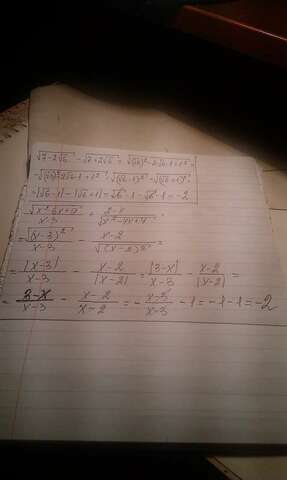 √7-2√6 - √7+2√6 = √(√6)²-2√6·1+1² =
-√(√6)²+2√6·1+1² = √(√6-1)² - √(√6+1)² =
=|√6-1|-|√6+1|=√6-1-√6-1=-2
√x²-6x+9 / x-3 + 2-x / √x²-4x+4 =
=√(x-3)² / x-3 - x-2 / √(x-2)² =
=|x-3| / x-3 - x-2 / |x-2| = |3-x| / x-3 - x-2 / |x-2| =
= 3-x / x-3 - x-2 / x-2 = - x-3 / x-3 -1=-1-1=-2